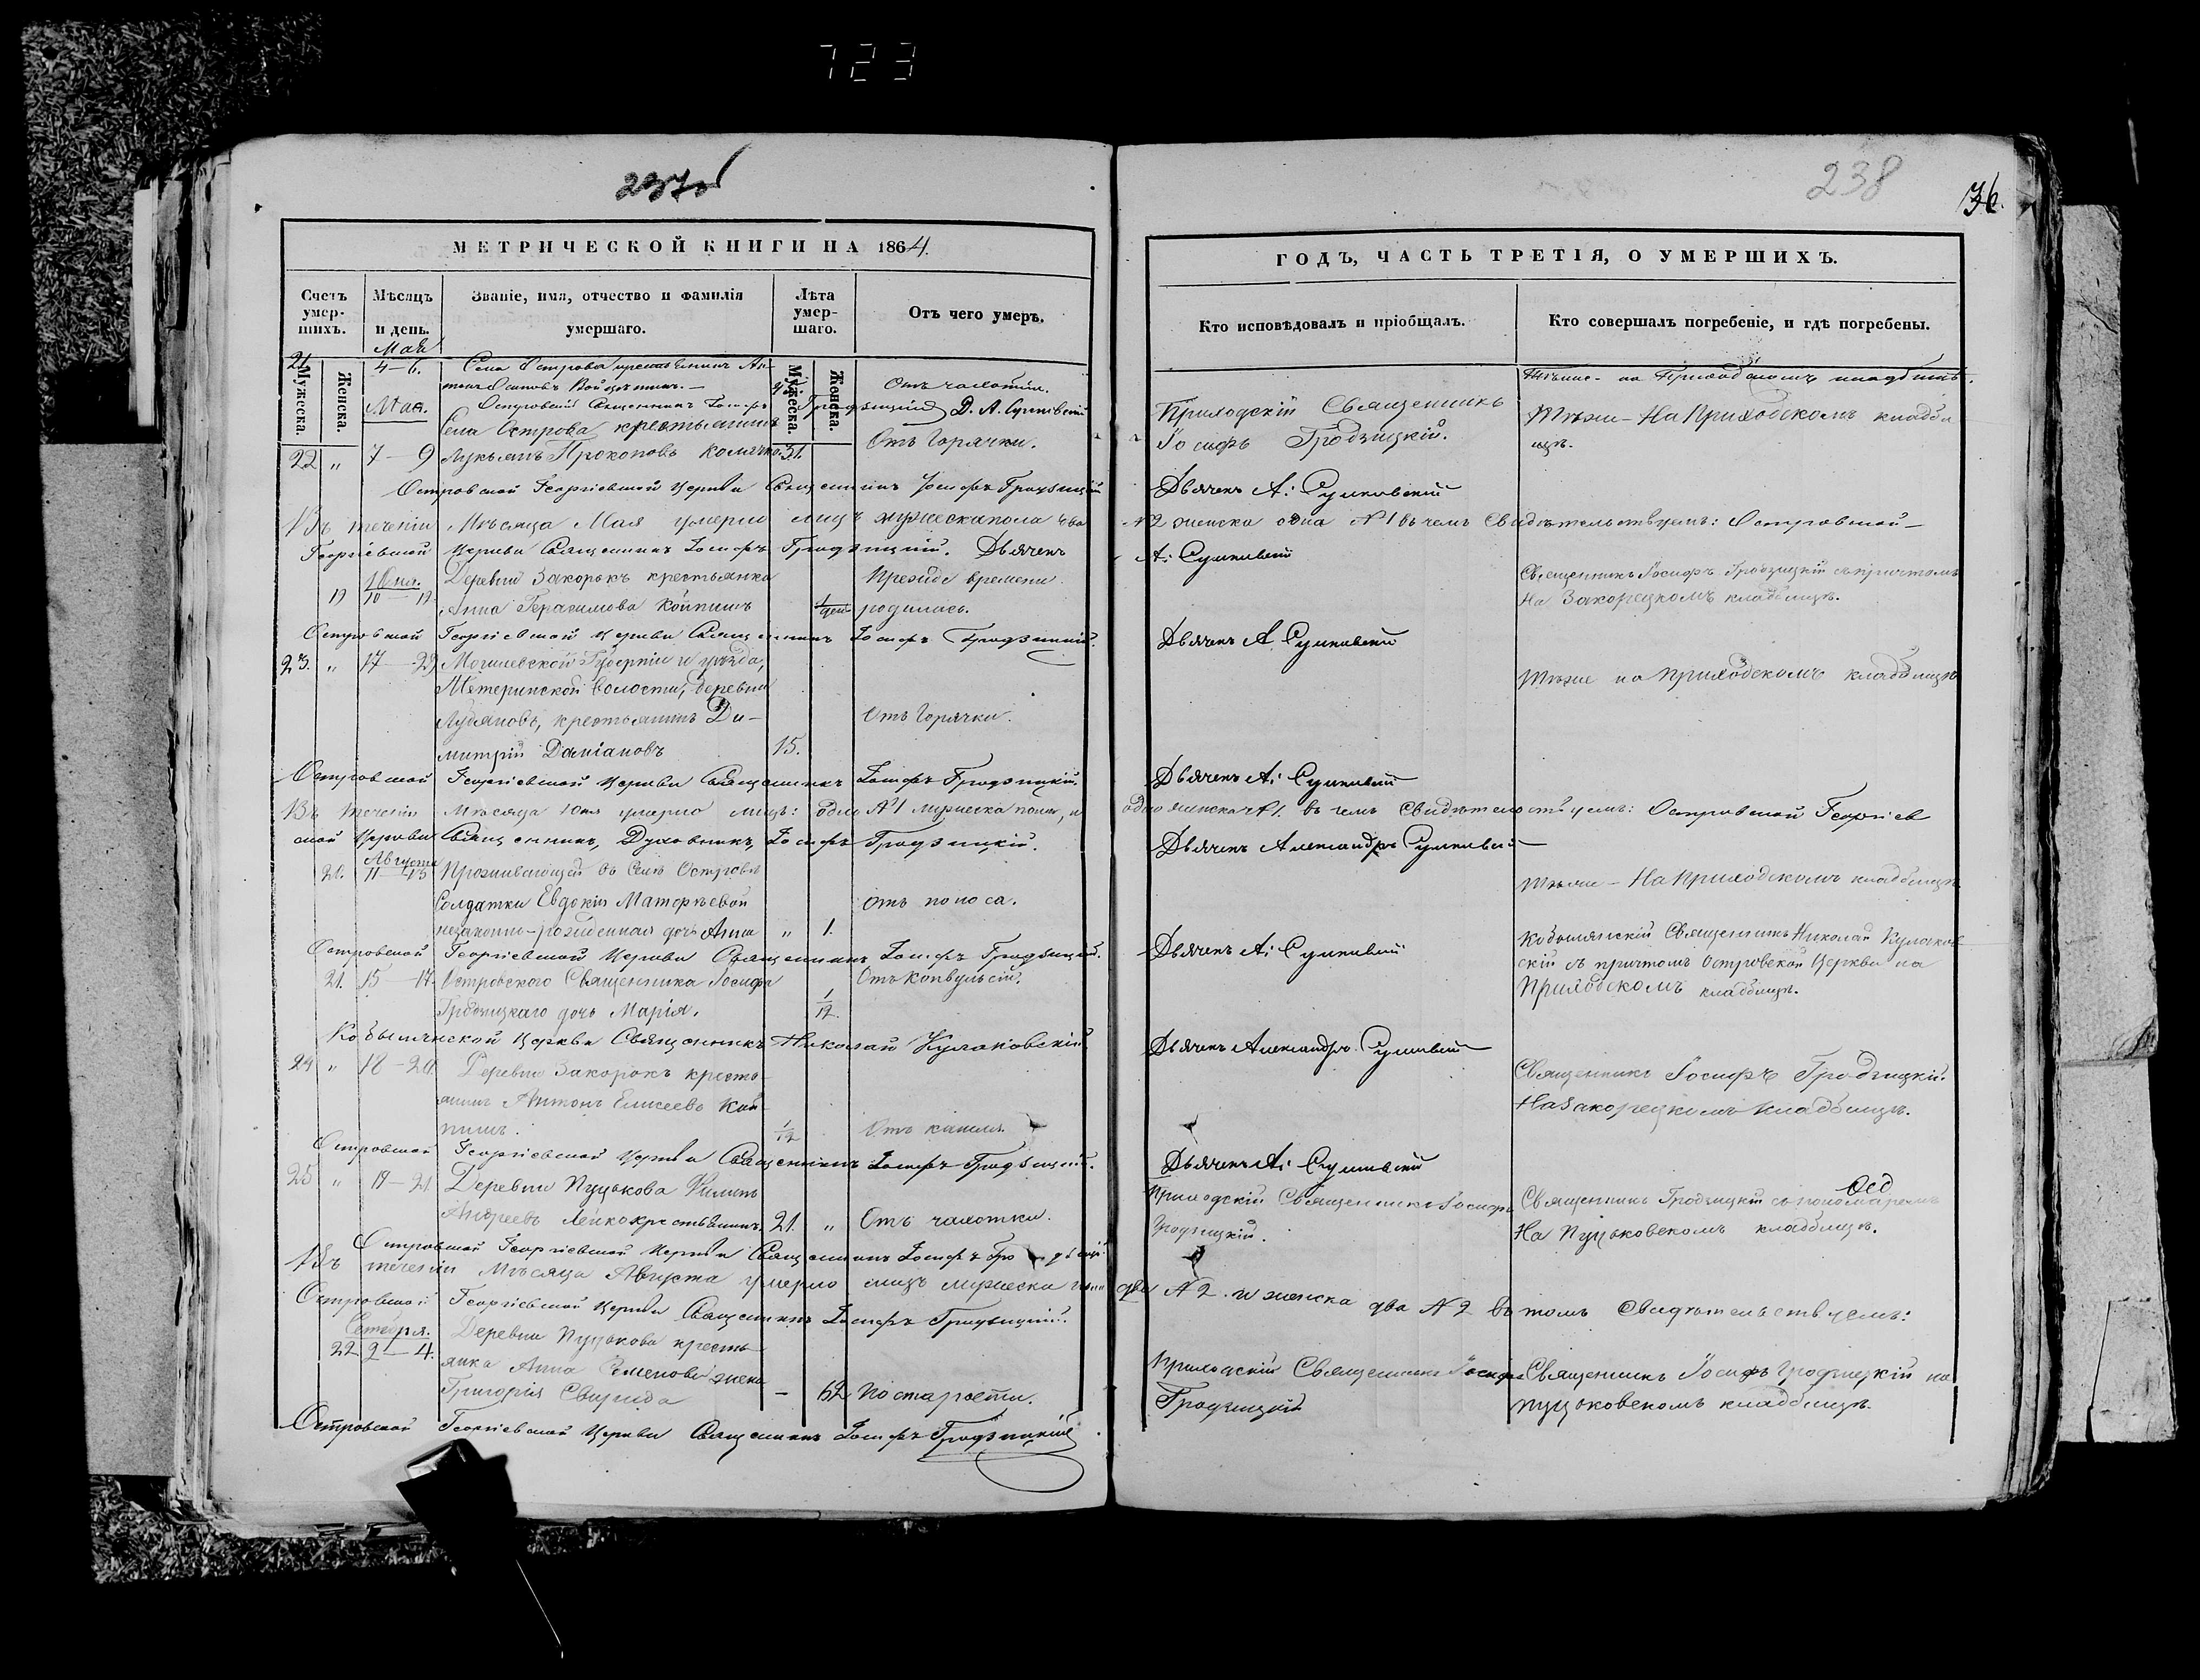 723
238
36.
МЕТРИЧЕСКОЙ КНИГИ НА 1864.
ГОДЪ, ЧАСТЬ ТРЕТІЯ, О УМЕРШИХЪ.
Счетъ умер-
шихъ.
Мѣсяцъ
и день.
Званіе, имя, отчество и фамилія
умершаго.
Лѣта
умер-
шаго.
Отъ чего умеръ.
Кто исповѣдовалъ и пріобщалъ.
Кто совершалъ погребеніе, и гдѣ погребены.
Мужеска.
Женска.
Мужеска.
Женска.
Мая
21 4–6. Села Острова крестьянинъ Ан-
тонъ Осиповъ
на Приходскомъ кладбищѣ.
Островскій Священникъ Іосифъ Гродзицкій Д. А. Сулковскій
Мая.
Села Острова крестьянинъ
22 „ 7–9 Лукьянъ Прокоповъ 31. Отъ Горячки.
Приходскій Священникъ
Іосифъ Гродзицкій.
Тѣже – На Приходскомъ кладби
щѣ.
Островской Георгіевской Церкви Священникъ Іосифъ Гродзицкій
Дьячекъ А: Сулковскій
Въ теченіи Мѣсяца Мая умерли лицъ мужеска пола два
№2 женска одна №1 въ чемъ Свидѣтельствуемъ: Островской –
Георгіевской Церкви Священникъ Іосифъ Гродзицкій. Дьячекъ
А: Сулковскій
Іюля.
19 10–12 Деревни Закорокъ крестьянка
Анна Герасимова
Прежде времени
родилась.
Священникъ Іосифъ Гродзицкій съ причтомъ
На Закорецкомъ кладбищѣ.
Островской Георгіевской Церкви Священникъ Іосифъ Гродзицкій.
Дьячекъ А. Сулковскій
23. „ 17 Могилевской Губерніи и уѣзда,
волости, деревни
крестьянинъ Ди-
митрій Даміановъ 15. Отъ Горячки.
Тѣже на приходскомъ кладбищѣ
Островской Георгіевской Церкви Священникъ Іосифъ Гродзицкій.
Дьячекъ А: Сулковскій
Въ теченіи Мѣсяца Іюля умерло лицъ: одно №1 мужеска пола, и
одно женска №1. въ чемъ Свидѣтельствуемъ: Островской Георгіев
ской Церкви Священникъ, Духовникъ, Іосифъ Гродзицкій.
Дьячекъ Александръ Сулковскій
Августа
20. 11–13 Проживающей въ Селѣ Островѣ
Солдатки Евдокіи Матфѣевой
незаконно-рожденная дочь Анна „ 1. Отъ поноса.
Тѣже – На Приходскомъ кладбищѣ.
Островской Георгіевской Церкви Священникъ Іосифъ Гродзицкій.
Дьячекъ А: Сулковскій
21. 15–17. Островскаго Священника Іосифа
Гродзицкаго дочь Марія. 1/12 Отъ конвульсій.
Священникъ Николай Кулаков
скій съ причтомъ Островской Церкви на
Приходскомъ кладбищѣ.
Церкви Священникъ Николай Кулаковскій.
Дьячекъ Александръ Сулковскій
24 „ 18–20. Деревни Закорокъ кресть-
янинъ Антонъ Елисеевъ
1/12 Отъ кашля.
Священникъ Іосифъ Гродзицкій.
На Закорецкомъ кладбищѣ.
Островской Георгіевской Церкви Священникъ Іосифъ Гродзицкій.
Дьячекъ А: Сулковскій
25 „ 19–21 Деревни Пуцькова
Андреевъ крестьянинъ 21. „ Отъ чахотки.
Приходскій Священникъ Іосифъ
Гродзицкій.
Священникъ Гродзицкій съ пономаремъ
На Пуцьковскомъ кладбищѣ.
Островской Георгіевской Церкви Священникъ Іосифъ
Въ теченіи Мѣсяца Августа умерло лицъ мужеска пола
два №2 и женска два №2 въ томъ Свидѣтельствуемъ:
Островской Георгіевской Церкви Священникъ Іосифъ Гродзицкій.
Сентября.
22 2–4. Деревни Пуцькова кресть-
янка Анна Семенова жена
Григорія Свирида – 62 По старости.
Приходскій Священникъ Іосифъ
Гродзицкій
Священникъ Іосифъ Гродзицкій на
Пуцьковскомъ кладбищѣ.
Островской Георгіевской Церкви Священникъ Іосифъ Гродзицкій